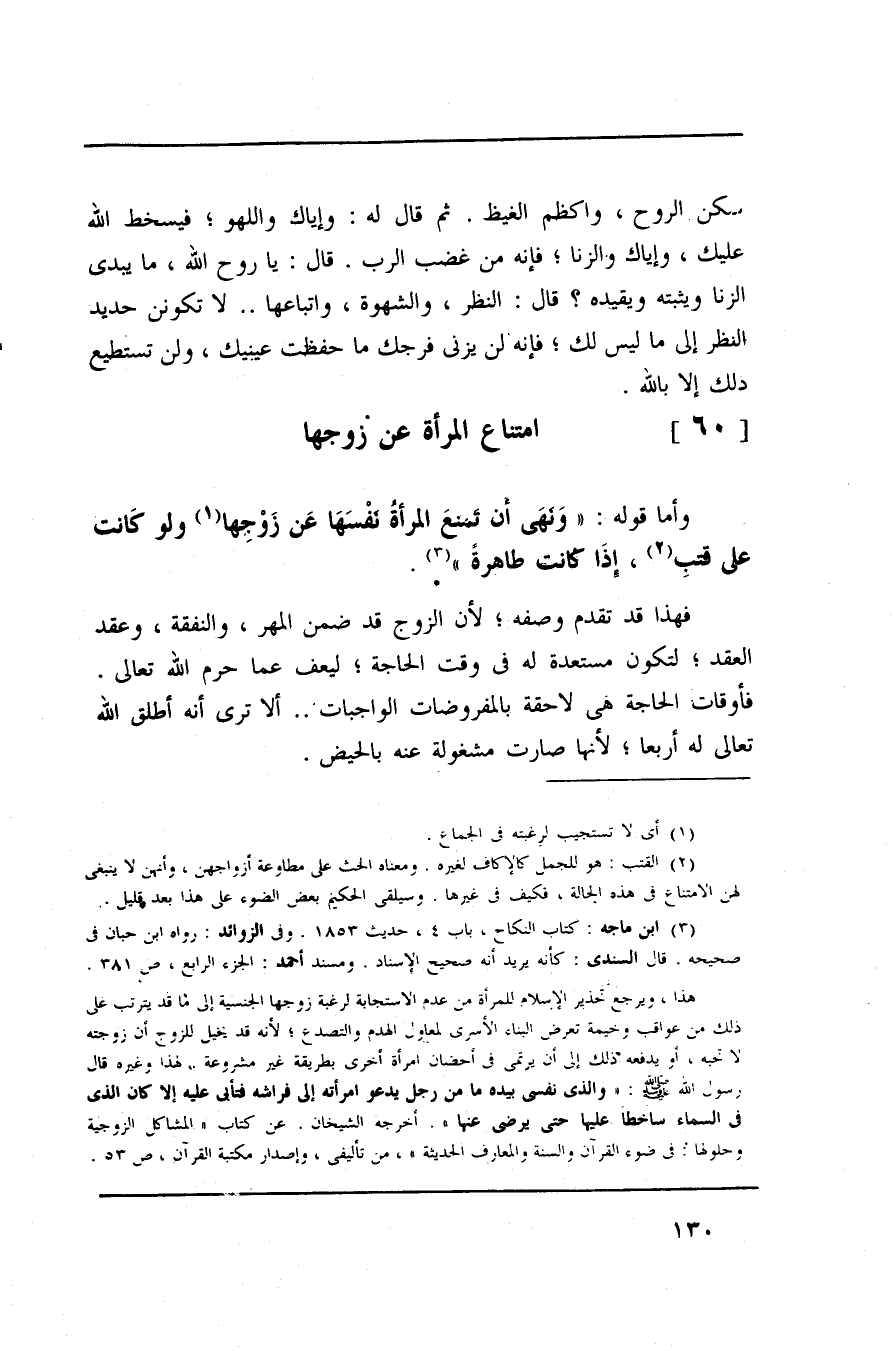 سكن الروح ، واكظم الغيظ . ثم قال له : وإياك واللهو ؛ فيسخط الله
عليك ، وإياك والزنا ؛ فإنه من غضب الرب . قال : يا روح الله ، ما يبدى
الزنا ويثبته ويقيده ؟ قال : النظر ، والشهوة ، واتباعها .. لا تكونن حديد
النظر إلى ما ليس لك ؛ فإنه لن يزنى فرجك ما حفظت عينيك ، ولن تستطيع
ذلك إلا بالله .
[ ٦٠ ] امتناع المرأة عن زوجها
وأما قوله : « وَنَهَى أن تَمنعَ المرأةُ نَفْسَهَا عَن زَوْجِها(١) ولو كَانت
على قتبِ(٢) ، إِذَا كانت طاهرةً »(٣) .
فهذا قد تقدم وصفه ؛ لأن الزوج قد ضمن المهر ، والنفقة ، وعقد
العقد ؛ لتكون مستعدة له فى وقت الحاجة ؛ ليعف عما حرم الله تعالى .
فأوقات الحاجة هى لاحقة بالمفروضات الواجبات .. ألا ترى أنه أطلق الله
تعالى له أربعا ؛ لأنها صارت مشغولة عنه بالحيض .
(١) أى لا تستجيب لرغبته فى الجماع .
(٢) القتب : هو للجمل كالإكاف لغيره . ومعناه الحث على مطاوعة أزواجهن ، وأنهن لا ينبغى
لهن الامتناع فى هذه الحالة ، فكيف فى غيرها . وسيلقى الحكيم بعض الضوء على هذا بعد قليل .
(٣) ابن ماجه : كتاب النكاح ، باب ٤ ، حديث ١٨٥٣ . وفى الزوائد : رواه ابن حبان فى
صحيحه . قال السندى : كأنه يريد أنه صحيح الإسناد . ومسند أحمد : الجزء الرابع ، ص ٣٨١ .
هذا ، ويرجع تحذير الإسلام للمرأة من عدم الاستجابة لرغبة زوجها الجنسية إلى ما قد يترتب على
ذلك من عواقب وخيمة تعرض البناء الأسرى لمعاول الهدم والتصدع ؛ لأنه قد يخيل للزوج أن زوجته
لا تحبه ، أو يدفعه ذلك إلى أن يرتمى فى أحضان امرأة أخرى بطريقة غير مشروعة .. لهذا وغيره قال
رسول الله ﷺ : « والذى نفسى بيده ما من رجل يدعو امرأته إلى فراشه فتأبى عليه إلا كان الذى
فى السماء ساخطاً عليها حتى يرضى عنها » . أخرجه الشيخان . عن كتاب « المشاكل الزوجية
وحلولها : فى ضوء القرآن والسنة والمعارف الحديثة » ، من تأليفى ، وإصدار مكتبة القرآن ، ص ٥٣ .
١٣٠